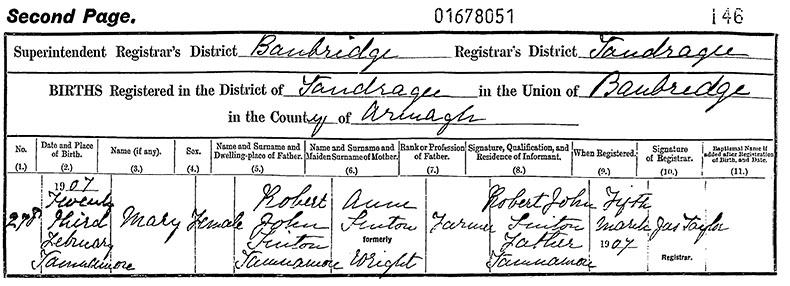 Second Page. 01678051 146
Superintendent Registrar's District Banbridge Registrar's District Tandragee
BIRTHS Registered in the District of Tandragee in the Union of Banbridge
in the County of Armagh
No. Date and Place of Birth. Name (if any). Sex. Name and Surname and Dwelling-place of Father. Name and Surname and Maiden Surname of Mother. Rank or Profession of Father. Signature, Qualification, and Residence of Informant. When Registered. Signature of Registrar. Baptismal Name if added after Registration of Birth, and Date.
(1.) (2.) (3.) (4.) (5.) (6.) (7.) (8.) (9.) (10.) (11.)
1907
Twenty Robert Anne Robert John Fifth
278 Third Mary Female John Sinton Farmer Sinton March Jas Taylor
February Sinton formerly Father 1907
Tamnamore Wright Tamnamore Registrar.